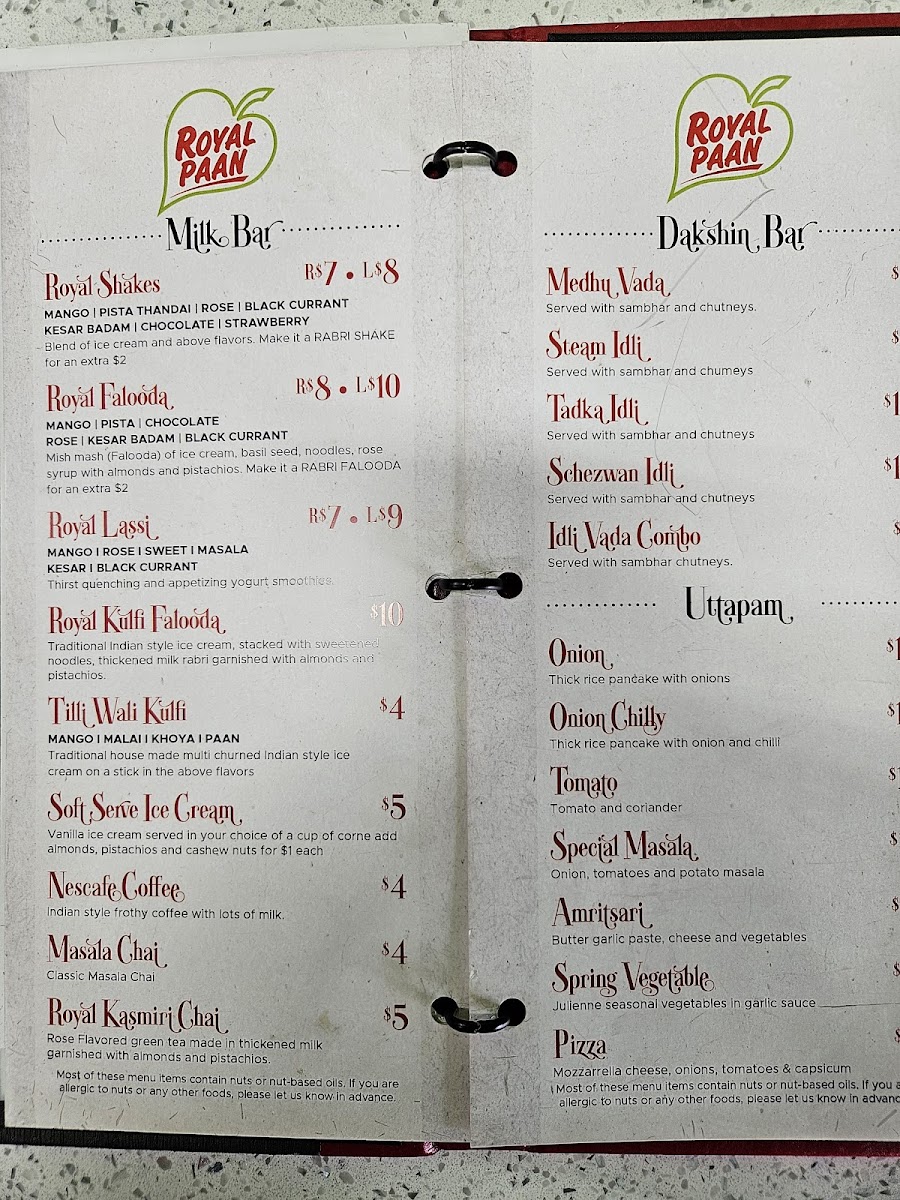 ROYAL
PAAN
Milk Bar
Royal Shakes R$7 • L$8
MANGO | PISTA THANDAI | ROSE | BLACK CURRANT
KESAR BADAM | CHOCOLATE | STRAWBERRY
Blend of ice cream and above flavors. Make it a RABRI SHAKE
for an extra $2
Royal Falooda R$8 • L$10
MANGO | PISTA | CHOCOLATE
ROSE | KESAR BADAM | BLACK CURRANT
Mish mash (Falooda) of ice cream, basil seed, noodles, rose
syrup with almonds and pistachios. Make it a RABRI FALOODA
for an extra $2
Royal Lassi R$7 • L$9
MANGO I ROSE I SWEET I MASALA
KESAR I BLACK CURRANT
Thirst quenching and appetizing yogurt smoothies.
Royal Kulfi Falooda $10
Traditional Indian style ice cream, stacked with sweetened
noodles, thickened milk rabri garnished with almonds and
pistachios.
Tilli Wali Kulfi $4
MANGO I MALAI I KHOYA I PAAN
Traditional house made multi churned Indian style ice
cream on a stick in the above flavors
Soft Serve Ice Cream $5
Vanilla ice cream served in your choice of a cup of corne add
almonds, pistachios and cashew nuts for $1 each
Nescafe Coffee $4
Indian style frothy coffee with lots of milk.
Masala Chai $4
Classic Masala Chai
Royal Kasmiri Chai $5
Rose Flavored green tea made in thickened milk
garnished with almonds and pistachios.
Most of these menu items contain nuts or nut-based oils. If you are
allergic to nuts or any other foods, please let us know in advance.
ROYAL
PAAN
Dakshin Bar
Medhu Vada $
Served with sambhar and chutneys.
Steam Idli $
Served with sambhar and chumeys
Tadka Idli $1
Served with sambhar and chutneys
Schezwan Idli $1
Served with sambhar and chutneys
Idli Vada Combo $
Served with sambhar chutneys.
Uttapam
Onion $1
Thick rice pancake with onions
Onion Chilly $1
Thick rice pancake with onion and chilli
Tomato $1
Tomato and coriander
Special Masala $
Onion, tomatoes and potato masala
Amritsari $
Butter garlic paste, cheese and vegetables
Spring Vegetable $
Julienne seasonal vegetables in garlic sauce
Pizza $
Mozzarrella cheese, onions, tomatoes & capsicum
Most of these menu items contain nuts or nut-based oils. If you a
allergic to nuts or any other foods, please let us know in advanc